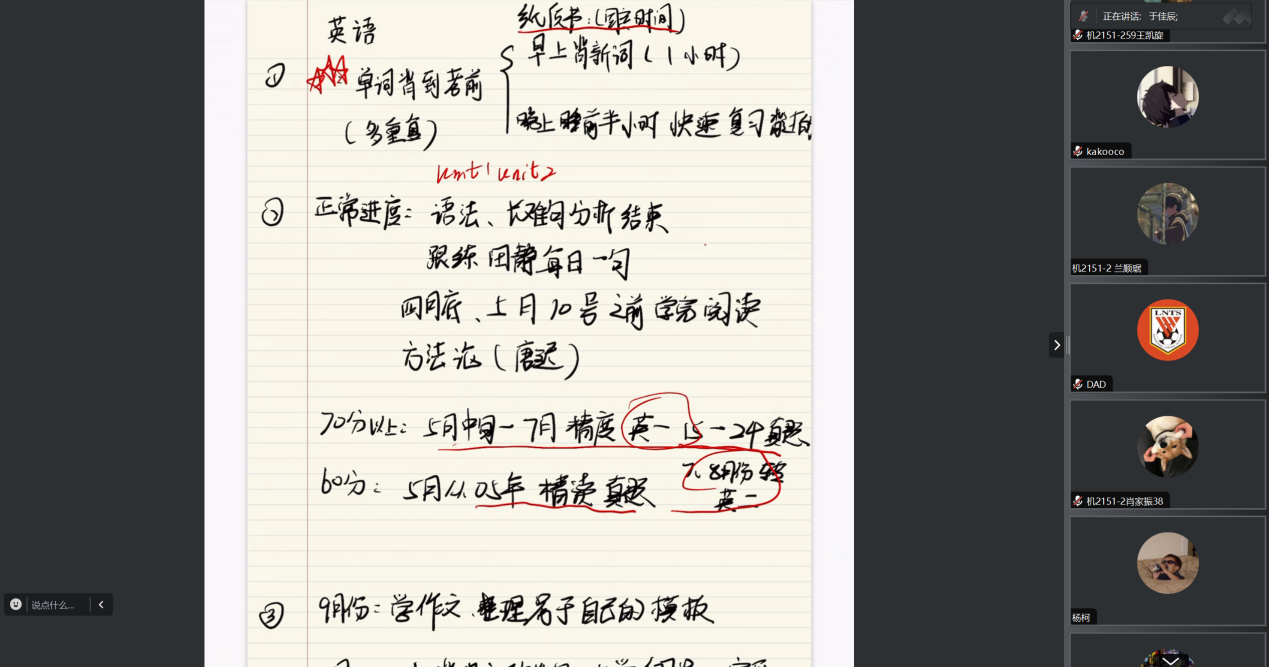 英语
纸质书:(固定时间)
① 单词背到考前
早上背新词(1小时)
(多重复)
晚上睡前半小时 快速复习
unit1 unit2
② 正常进度: 语法、长难句分析结束
跟练田静每日一句
四月底、5月10号之前学完阅读
方法论(唐迟)
70分以上: 5月中旬-7月 精度 英一 15-24真题
60分: 5月从05年 精读 真题
7、8月份
英二
③ 9月份:学作文、整理属于自己的模板
说点什么...
正在讲话: 于佳辰;
机2151-259王凯旋
kakooco
机2151-2 兰顺琚
LNTS
DAD
机2151-2肖家振38
杨柯